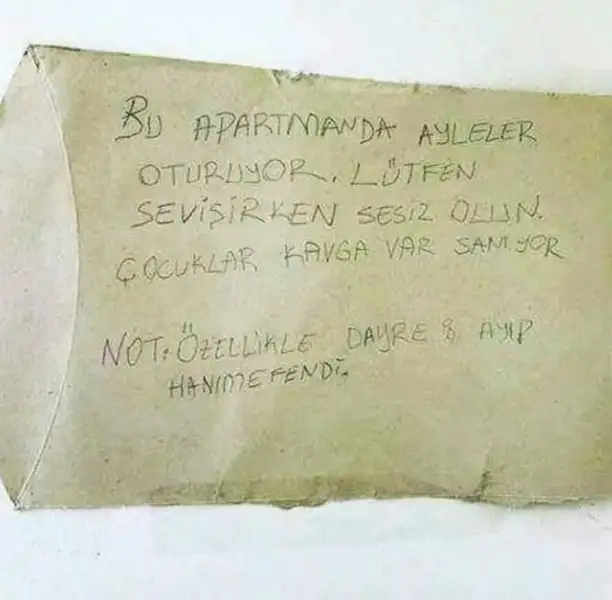 BU APARTMANDA AYLELER
OTURUYOR. LÜTFEN
SEVİŞİRKEN SESİZ OLUN.
ÇOCUKLAR KAVGA VAR SANIYOR
NOT: ÖZELLİKLE DAYRE 8 AYIP
HANIMEFENDİ.